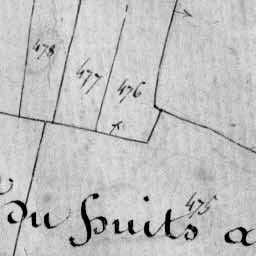 478
477
476
475
du puits